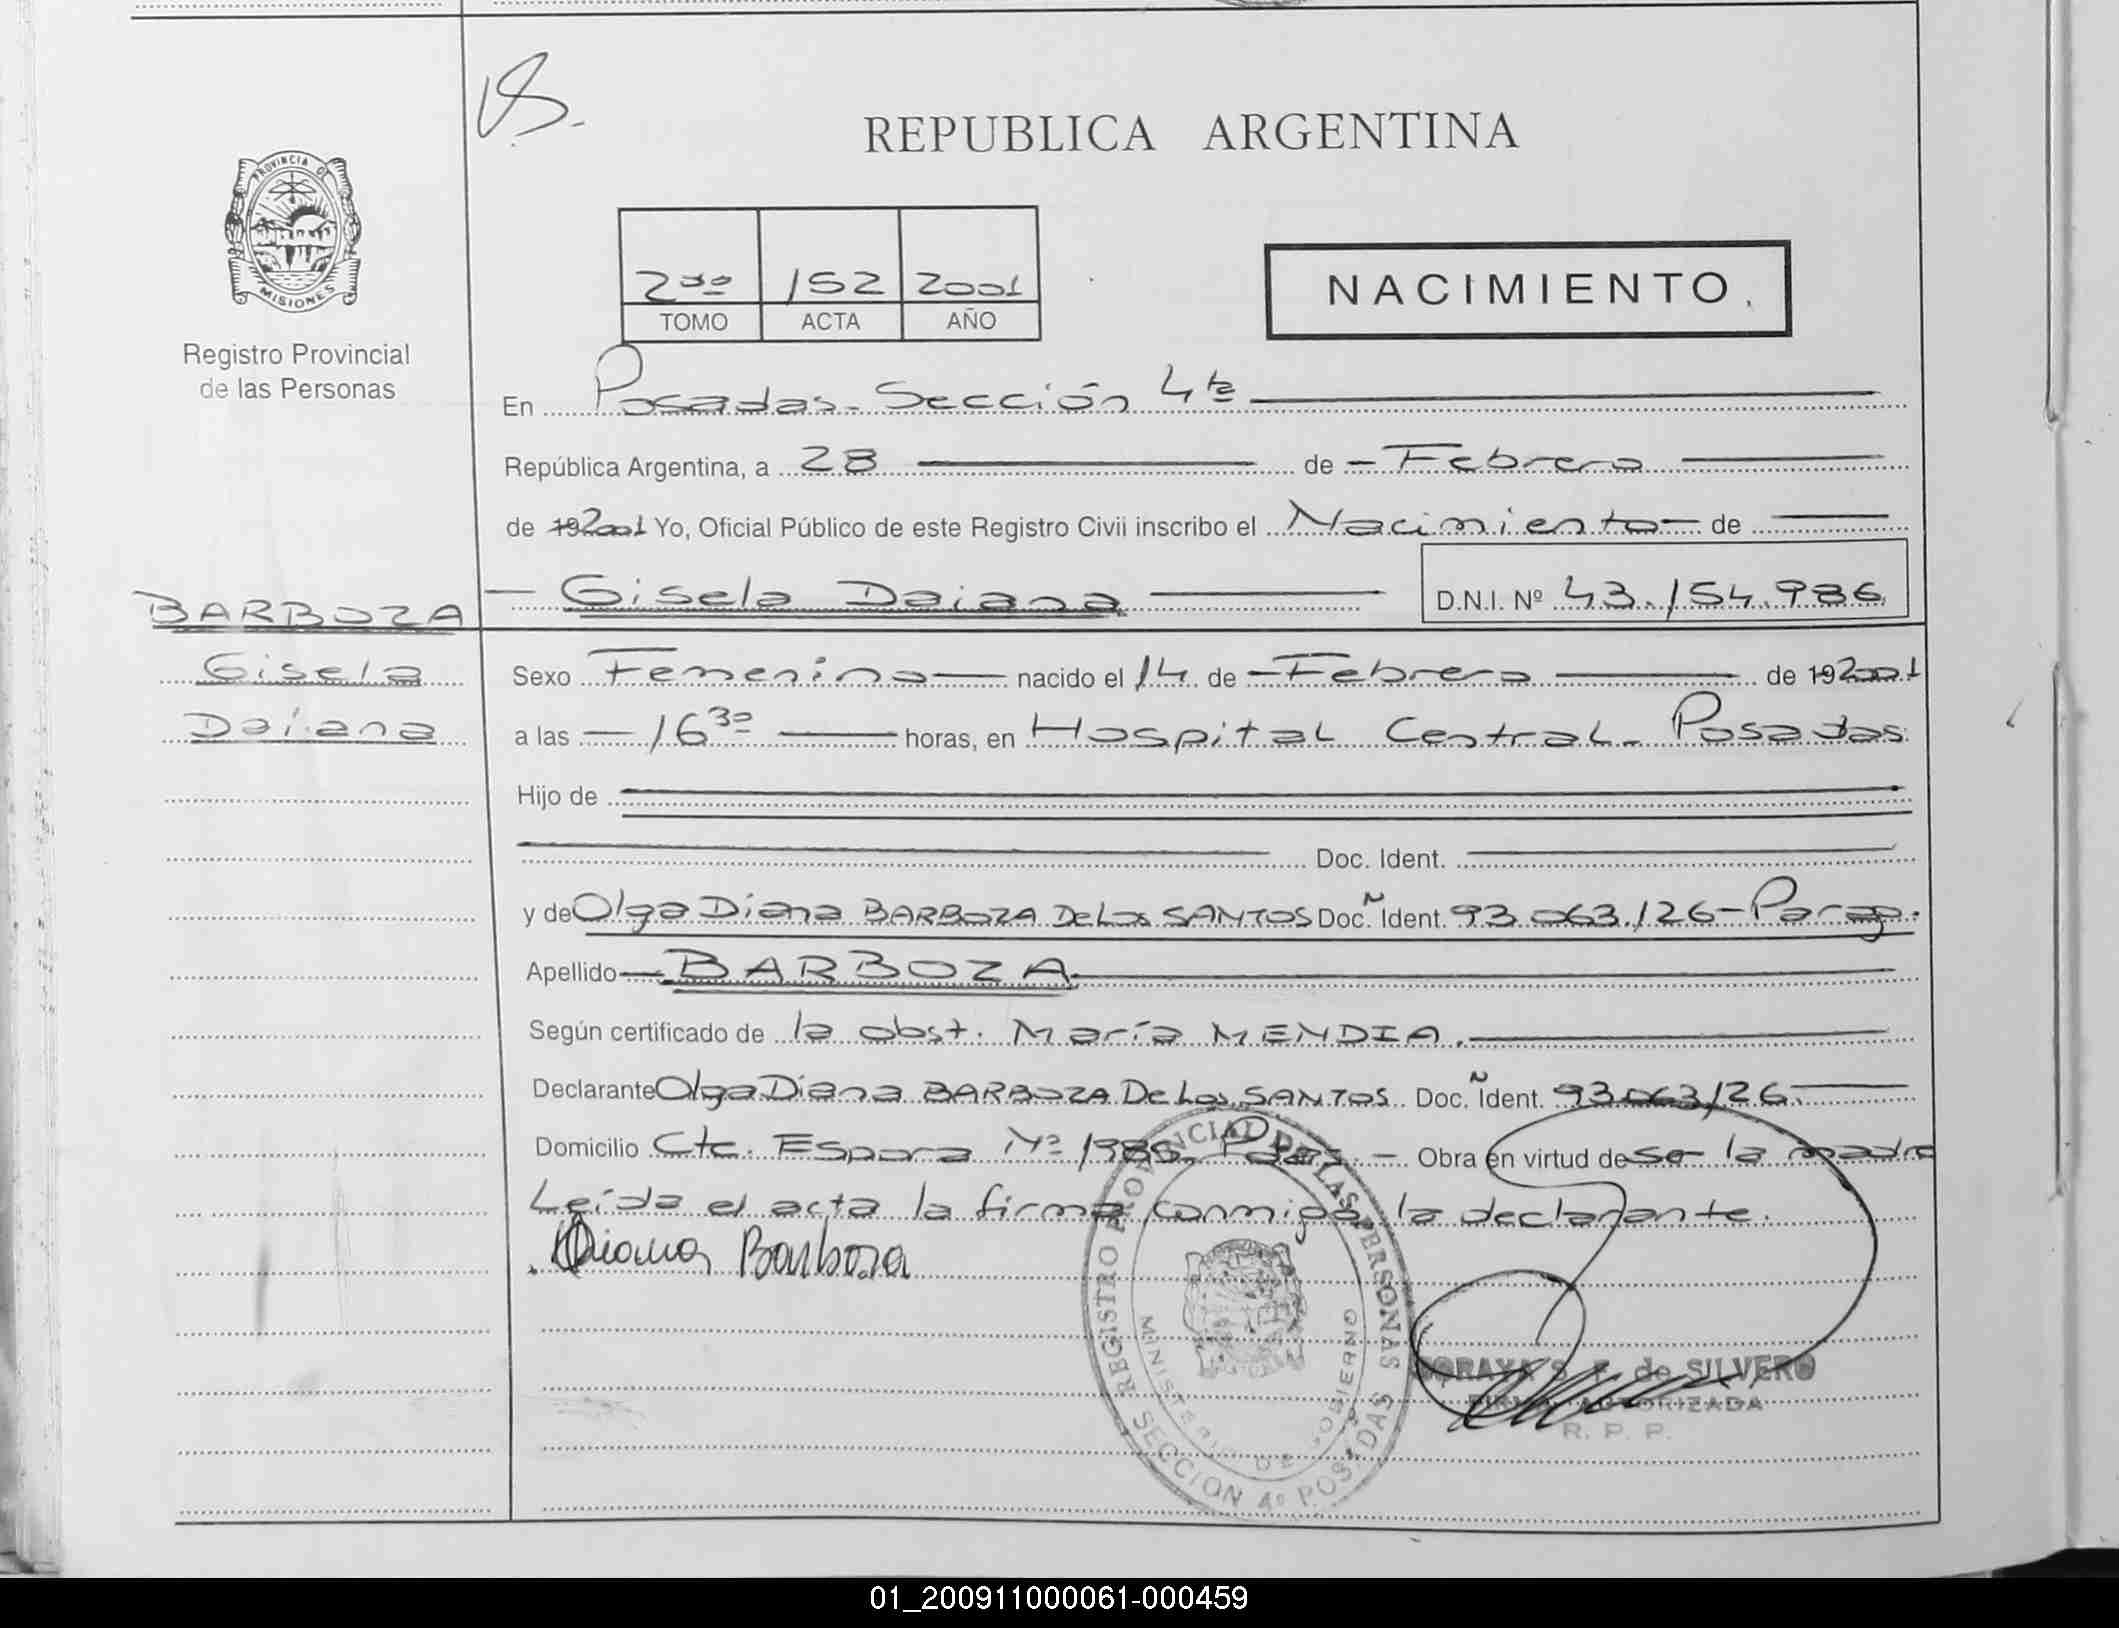 REPUBLICA ARGENTINA
PROVINCIA DE
MISIONES
Registro Provincial
de las Personas
2do 152 2001
TOMO ACTA AÑO
NACIMIENTO
En Posadas - Sección 4ta
República Argentina, a 28 de Febrero
de 192001 Yo, Oficial Público de este Registro Civil inscribo el Nacimiento de
Gisela Daiana D.N.I. Nº 43.154.986
BARBOZA
Gisela
Daiana
Sexo Femenino nacido el 14 de Febrero de 192001
a las 16 30 horas, en Hospital Central - Posadas
Hijo de
Doc. Ident.
y de Olga Diana BARBOZA De Los SANTOS Doc. Ident. 93.063.126 - Parag.
Apellido BARBOZA
Según certificado de la obst. María MENDIA.
Declarante Olga Diana BARBOZA De Los SANTOS Doc. Ident. 93063126
Domicilio Cte. Espora Nº 1986, Pdas - Obra en virtud de ser la madre
Leída el acta la firma conmigo, la declarante.
Diana Barboza
REGISTRO PROVINCIAL DE LAS PERSONAS
MINISTERIO DE GOBIERNO
SECCION 4º POSADAS
SORAYA S. F. de SILVERO
FIRMA AUTORIZADA
R. P. P.
01_200911000061-000459